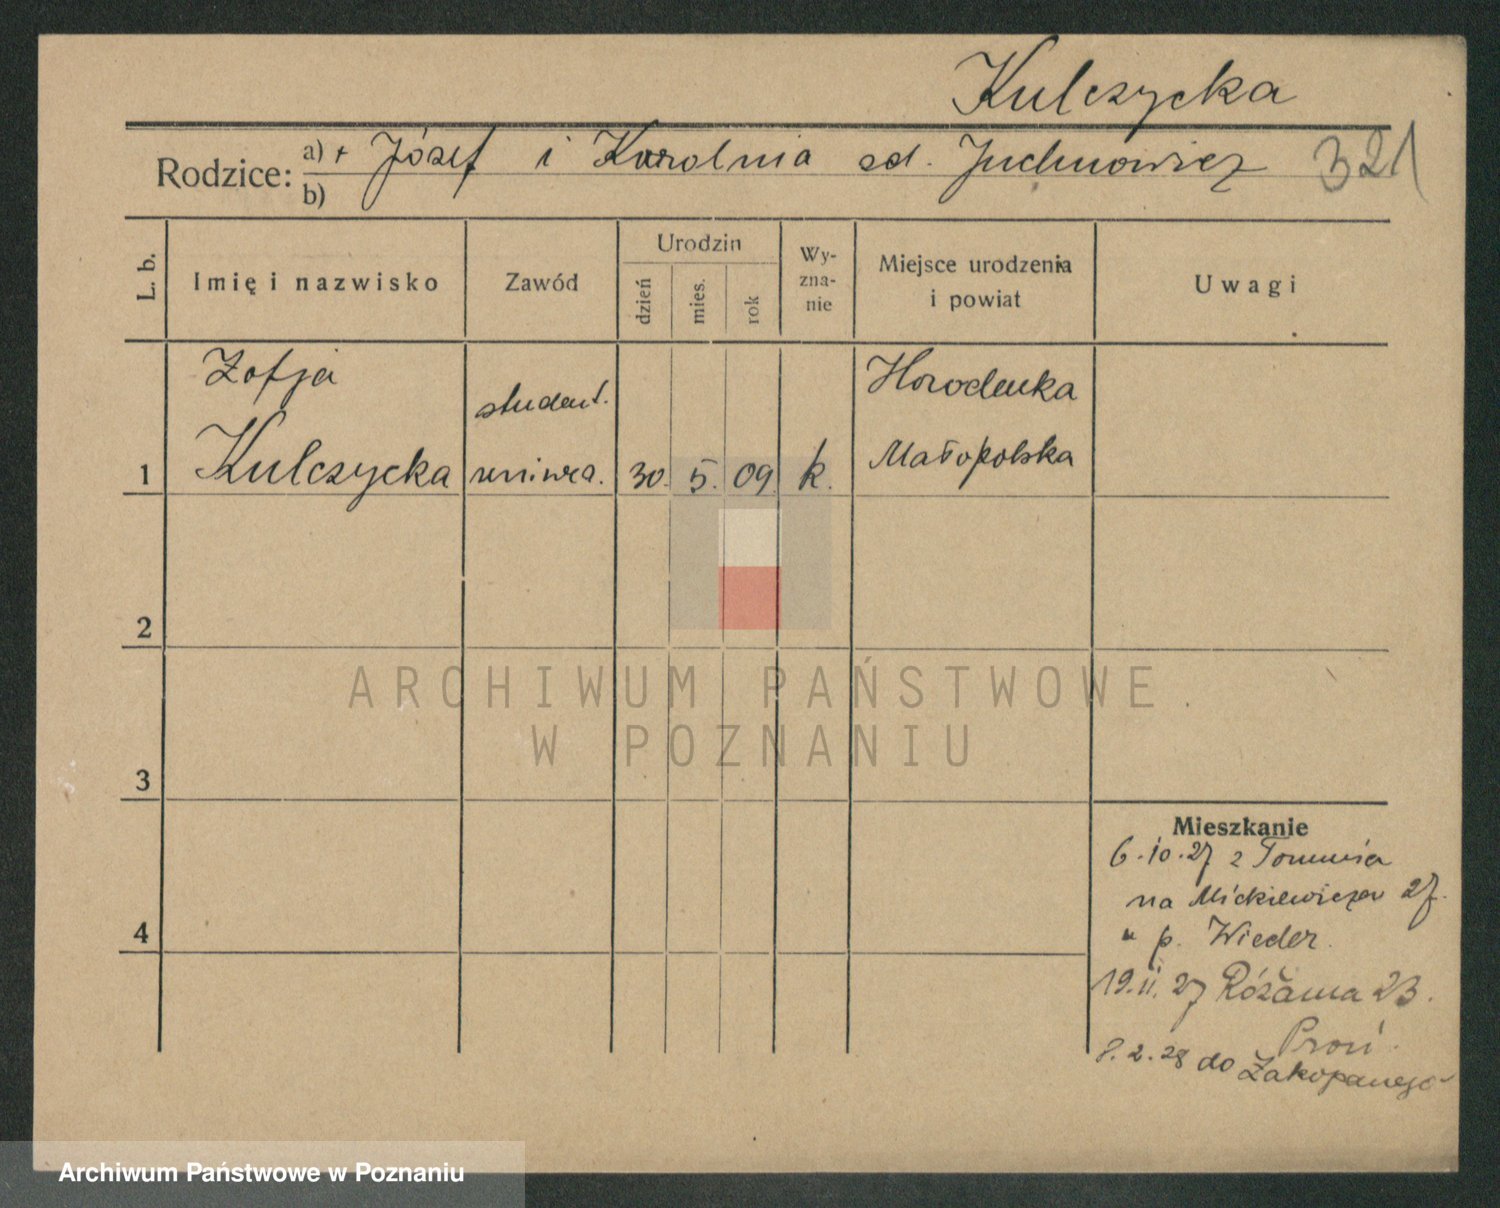 Kulczycka
Rodzice: a) + Józef i Karolina zd. Juchnowicz 321
b)
L. b.
Imię i nazwisko
Zawód
Urodzin
dzień
mies.
rok
Wy-
zna-
nie
Miejsce urodzenia
i powiat
Uwagi
Zofja student. Horodenka
1 Kulczycka uniwers. 30. 5. 09 k. Małopolska
2
ARCHIWUM PAŃSTWOWE
W POZNANIU
3
Mieszkanie
6.10.27 z Torunia
na Mickiewicza 27.
" p. Wieder.
4
19.11.27 Różana 23.
8.2.28 do Zakopanego
Archiwum Państwowe w Poznaniu